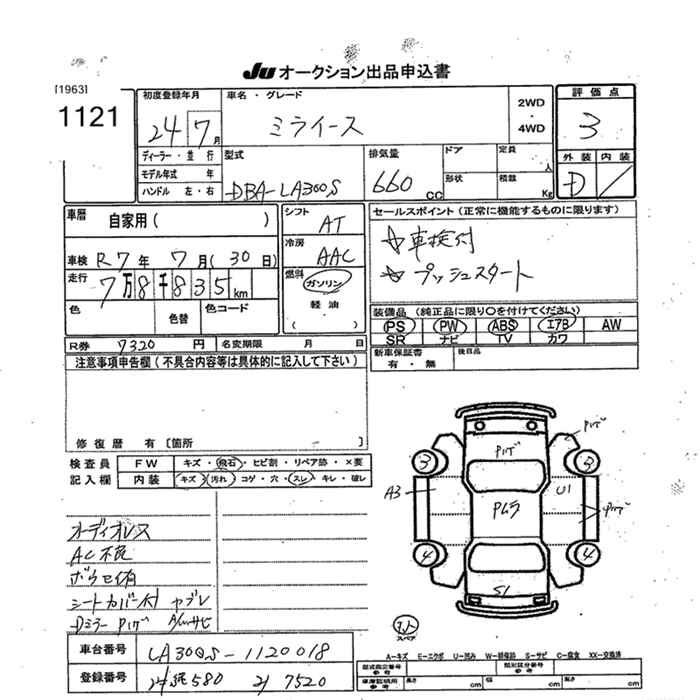 JU オークション出品申込書
[1963]
1121
初度登録年月
24 7月
車名・グレード
ミライース
2WD
・
4WD
評価点
3
外装 内装
D
ディーラー・並行
モデル年式 年
ハンドル 左・右
型式
DBA-LA300S
排気量
660 CC
ドア
定員
人
形状
積載
Kg
車歴
自家用( )
車検 R7年 7月(30日)
走行
7万8千835km
色
色替
色コード
シフト
AT
冷房
AAC
燃料
ガソリン
軽油
( )
セールスポイント(正常に機能するものに限ります)
☆車検付
☆プッシュスタート
装備品(純正品に限り○を付けてください)
PS PW ABS エアB AW
SR ナビ TV カワ
新車保証書
有・無
後日品
R券 7320円
名変期限 月 日
注意事項申告欄(不具合内容等は具体的に記入して下さい)
修復歴 有[箇所 ]
検査員
記入欄
FW キズ・飛石・ヒビ割・リペア跡・×要
内装 キズ・汚れ・コゲ・穴・スレ・キレ・破レ
オーディオレス
AC不良
シートカバー付 ヤブレ
Dミラー
車台番号
LA300S-1120018
登録番号
580 7520
3 3
4 4
A3
U1
スペア
A-キズ E-エクボ U-凹み W-補修跡 S-サビ C-腐食 XX-交換済
型式指定番号
類別区分番号
車庫証明用
参考
長さ cm
幅 cm
高さ cm